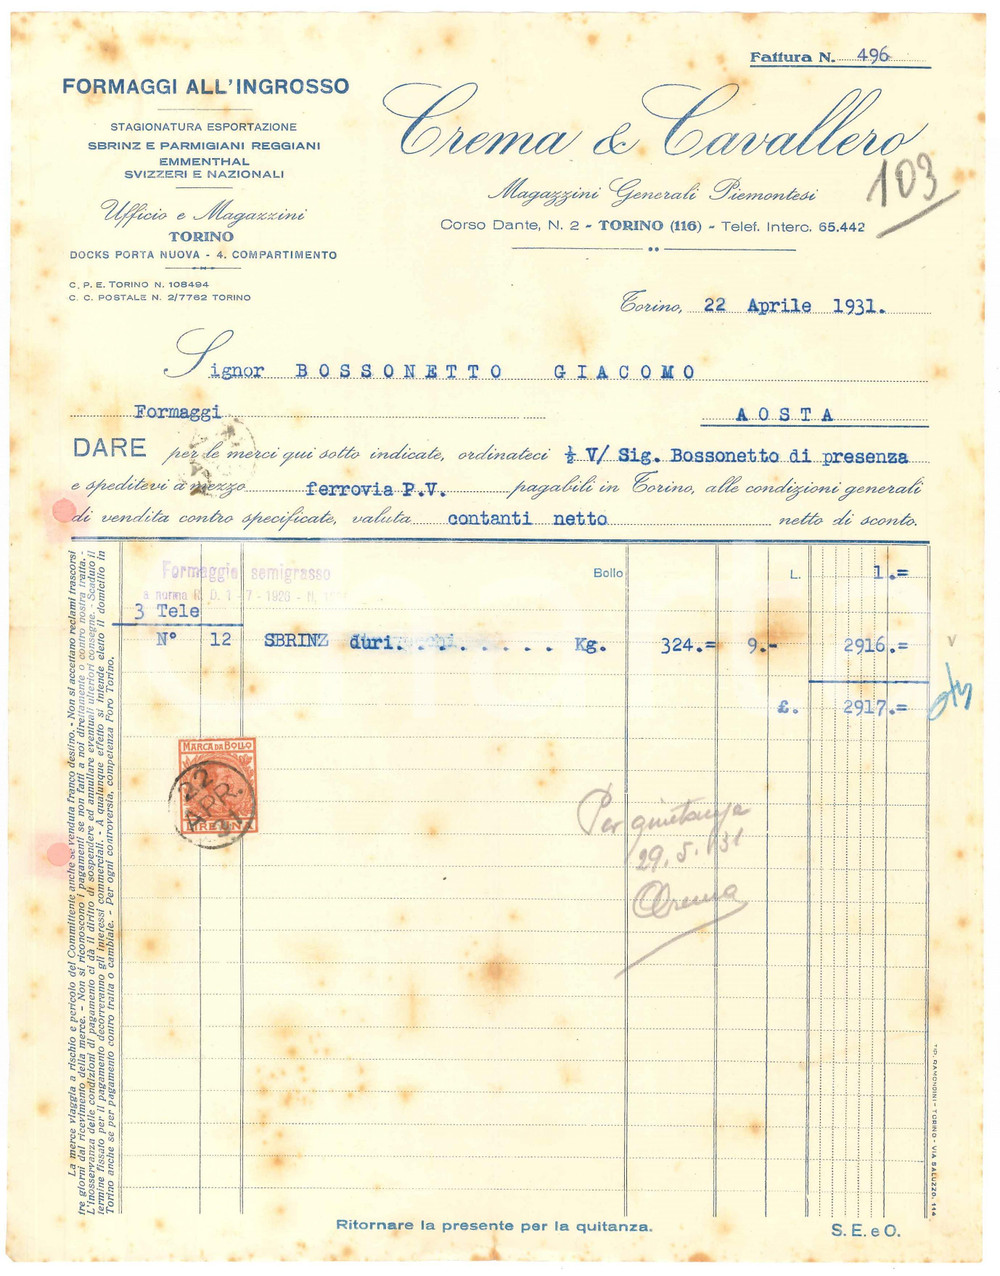 Fattura N. 496
FORMAGGI ALL'INGROSSO
STAGIONATURA ESPORTAZIONE
SBRINZ E PARMIGIANI REGGIANI
EMMENTHAL
SVIZZERI E NAZIONALI
Ufficio e Magazzini
TORINO
DOCKS PORTA NUOVA - 4. COMPARTIMENTO
C. P. E. TORINO N. 108494
C. C. POSTALE N. 2/7762 TORINO
Crema & Cavallero
103
Magazzini Generali Piemontesi
Corso Dante, N. 2 - TORINO (116) - Telef. Interc. 65.442
Torino, 22 Aprile 1931.
Signor BOSSONETTO GIACOMO
Formaggi AOSTA
DARE per le merci qui sotto indicate, ordinateci ½ V/ Sig. Bossonetto di presenza
e speditevi a mezzo ferrovia P.V. pagabili in Torino, alle condizioni generali
di vendita contro specificate, valuta contanti netto netto di sconto.
Formaggio semigrasso
Bollo L. 1.=
a norma R. D. 1 - 7 - 1926 - N.
3 Tele
N° 12 SBRINZ duri. . . . . . . . . Kg. 324.= 9.- 2916.=
£. 2917.=
MARCA DA BOLLO
22 APR. 31
LIRE UNA
Per quietanza
29.5.931
Crema
La merce viaggia a rischio e pericolo del Committente anche se venduta franco destino. - Non si accettano reclami trascorsi
tre giorni dal ricevimento della merce. - Non si riconoscono i pagamenti se non fatti a noi direttamente o contro nostra tratta. -
L'inosservanza delle condizioni di pagamento ci dà il diritto di sospendere ed annullare eventuali ulteriori consegne. - Scaduto il
termine fissato per il pagamento decorreranno gli interessi commerciali. - A qualunque effetto si intende eletto il domicilio in
Torino anche se per pagamento contro tratta o cambiale. - Per ogni controversia, competenza Foro Torino.
TIP. RAMONDINI - TORINO - VIA SALUZZO, 114
Ritornare la presente per la quitanza.
S. E. e O.